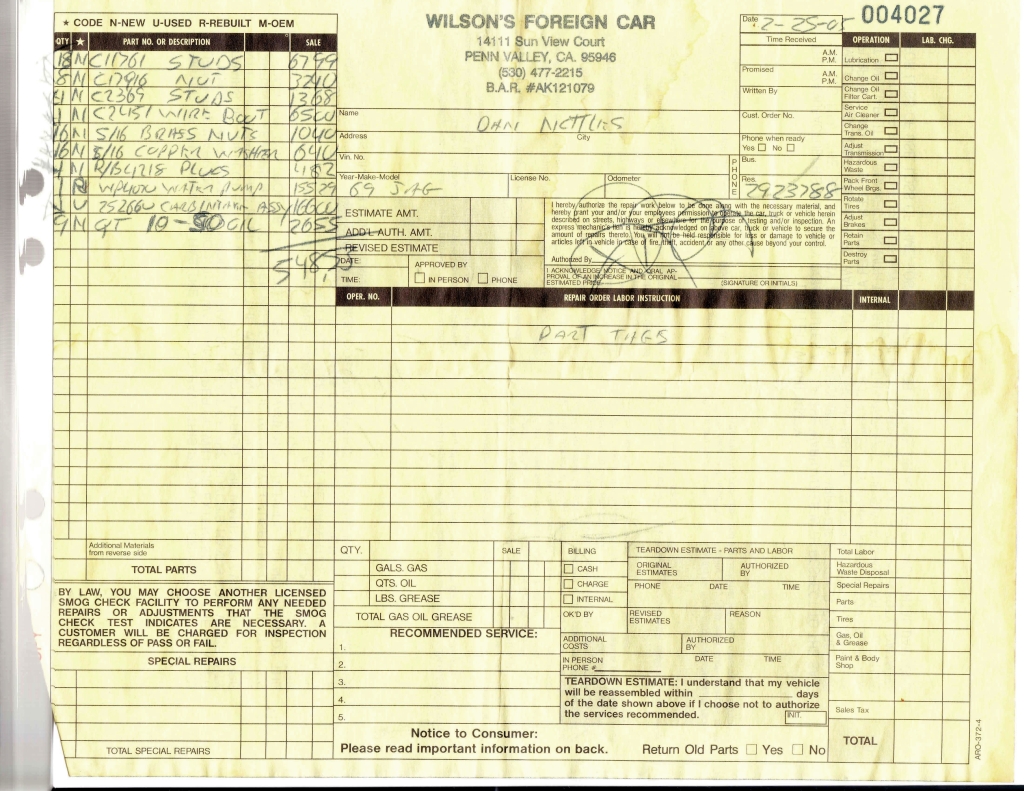 ★ CODE N-NEW U-USED R-REBUILT M-OEM
QTY ★ PART NO. OR DESCRIPTION SALE
18 N C11761 STUDS 6799
8 N C17916 NUT 3240
4 N C2369 STUDS 1368
1 N C2451 WIRE BOOT 6500
16 N 5/16 BRASS NUTS 1040
16 N 5/16 COPPER WASHER 640
PLUGS
1 R WATER PUMP 15529
U 25266U CARB INTAKE ASSY
9 N QT 10-50 OIL 2655
WILSON'S FOREIGN CAR
14111 Sun View Court
PENN VALLEY, CA. 95946
(530) 477-2215
B.A.R. #AK121079
Date 2-25-05
004027
Time Received
A.M.
P.M.
Promised
A.M.
P.M.
Written By
Name DAN NETTLES
Cust. Order No.
Address City
Phone when ready
Yes No
Vin. No.
PHONE
Bus.
Year-Make-Model 69 JAG
License No.
Odometer
Res. 2923788
OPERATION LAB. CHG.
Lubrication
Change Oil
Change Oil Filter Cart.
Service Air Cleaner
Change Trans. Oil
Adjust Transmission
Hazardous Waste
Pack Front Wheel Brgs.
Rotate Tires
Adjust Brakes
Retain Parts
Destroy Parts
ESTIMATE AMT.
ADD'L AUTH. AMT.
REVISED ESTIMATE
DATE:
TIME:
APPROVED BY
IN PERSON PHONE
I hereby authorize the repair work below to be done along with the necessary material, and
hereby grant your and/or your employees permission to operate the car, truck or vehicle herein
described on streets, highways or elsewhere for the purpose of testing and/or inspection. An
express mechanic's lien is hereby acknowledged on above car, truck or vehicle to secure the
amount of repairs thereto. You will not be held responsible for loss or damage to vehicle or
articles left in vehicle in case of fire, theft, accident or any other cause beyond your control.
Authorized By
I ACKNOWLEDGE NOTICE AND ORAL AP-
PROVAL OF AN INCREASE IN THE ORIGINAL
ESTIMATED PRICE
(SIGNATURE OR INITIALS)
OPER. NO. REPAIR ORDER LABOR INSTRUCTION INTERNAL
Additional Materials
from reverse side
TOTAL PARTS
BY LAW, YOU MAY CHOOSE ANOTHER LICENSED
SMOG CHECK FACILITY TO PERFORM ANY NEEDED
REPAIRS OR ADJUSTMENTS THAT THE SMOG
CHECK TEST INDICATES ARE NECESSARY. A
CUSTOMER WILL BE CHARGED FOR INSPECTION
REGARDLESS OF PASS OR FAIL.
SPECIAL REPAIRS
TOTAL SPECIAL REPAIRS
QTY. SALE
GALS. GAS
QTS. OIL
LBS. GREASE
TOTAL GAS OIL GREASE
RECOMMENDED SERVICE:
1.
2.
3.
4.
5.
BILLING
CASH
CHARGE
INTERNAL
OK'D BY
TEARDOWN ESTIMATE - PARTS AND LABOR
ORIGINAL ESTIMATES
AUTHORIZED BY
PHONE DATE TIME
REVISED ESTIMATES
REASON
ADDITIONAL COSTS
AUTHORIZED BY
IN PERSON
PHONE #
DATE TIME
TEARDOWN ESTIMATE: I understand that my vehicle
will be reassembled within days
of the date shown above if I choose not to authorize
the services recommended.
INIT.
Total Labor
Hazardous Waste Disposal
Special Repairs
Parts
Tires
Gas, Oil & Grease
Paint & Body Shop
Sales Tax
TOTAL
Notice to Consumer:
Please read important information on back.
Return Old Parts Yes No
ARO-372-4